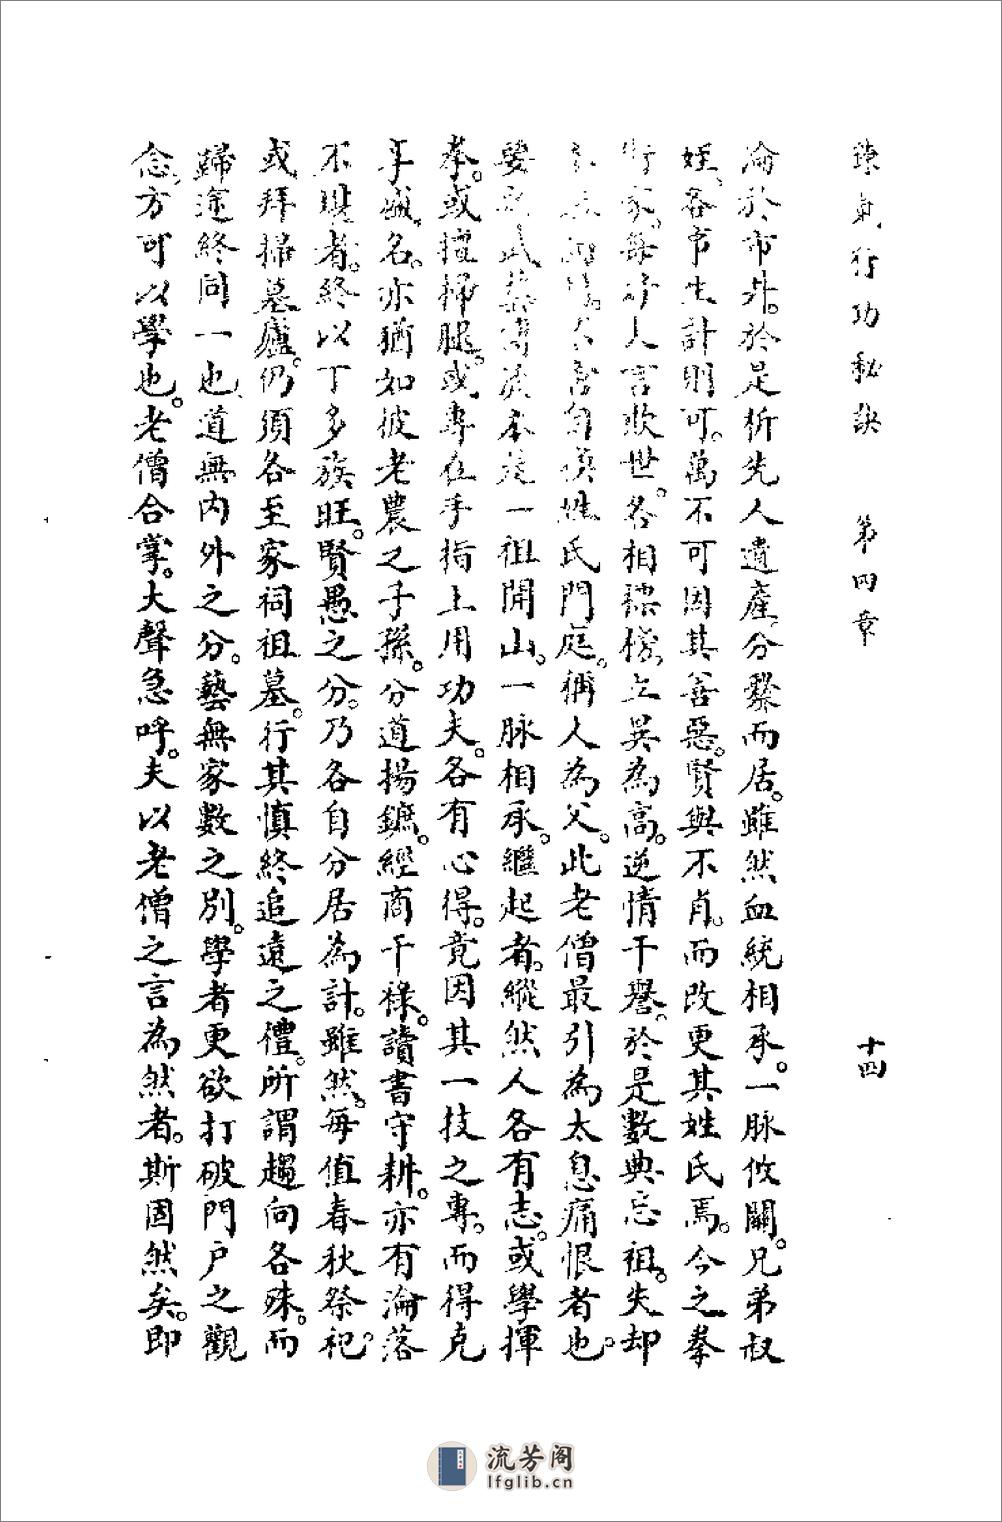 鍊氣行功秘訣 第四章 十四
淪於市井。於是析先人遺產、分爨而居。雖然血統相承。一脉攸關。兄弟叔
姪、各市生計則可。萬不可因其善惡。賢與不肖。而改更其姓氏焉。今之拳
術家。每好人言欺世。各相標榜。立異為高。逆情干譽。於是數典忘祖。失却
自換姓氏門庭。稱人為父。此老僧最引為太息痛恨者也。
一祖開山。一脉相承。繼起者。縱然人各有志。或學揮
拳。或擅掃腿。或專在手指上用功夫。各有心得。竟因其一技之專。而得克
享盛名。亦猶如彼老農之子孫。分道揚鑣。經商干祿。讀書守耕。亦有淪落
不堪者。終以丁多族旺。賢愚之分。乃各自分居為計。雖然。每值春秋祭祀。
或拜掃墓廬。仍須各至家祠祖墓。行其慎終追遠之禮。所謂趨向各殊。而
歸途終同一也、道無內外之分。藝無家數之別。學者更欲打破門户之觀
念、方可以學也。老僧合掌。大聲急呼。夫以老僧之言為然者。斯固然矣。即
流芳阁
lfglib.cn